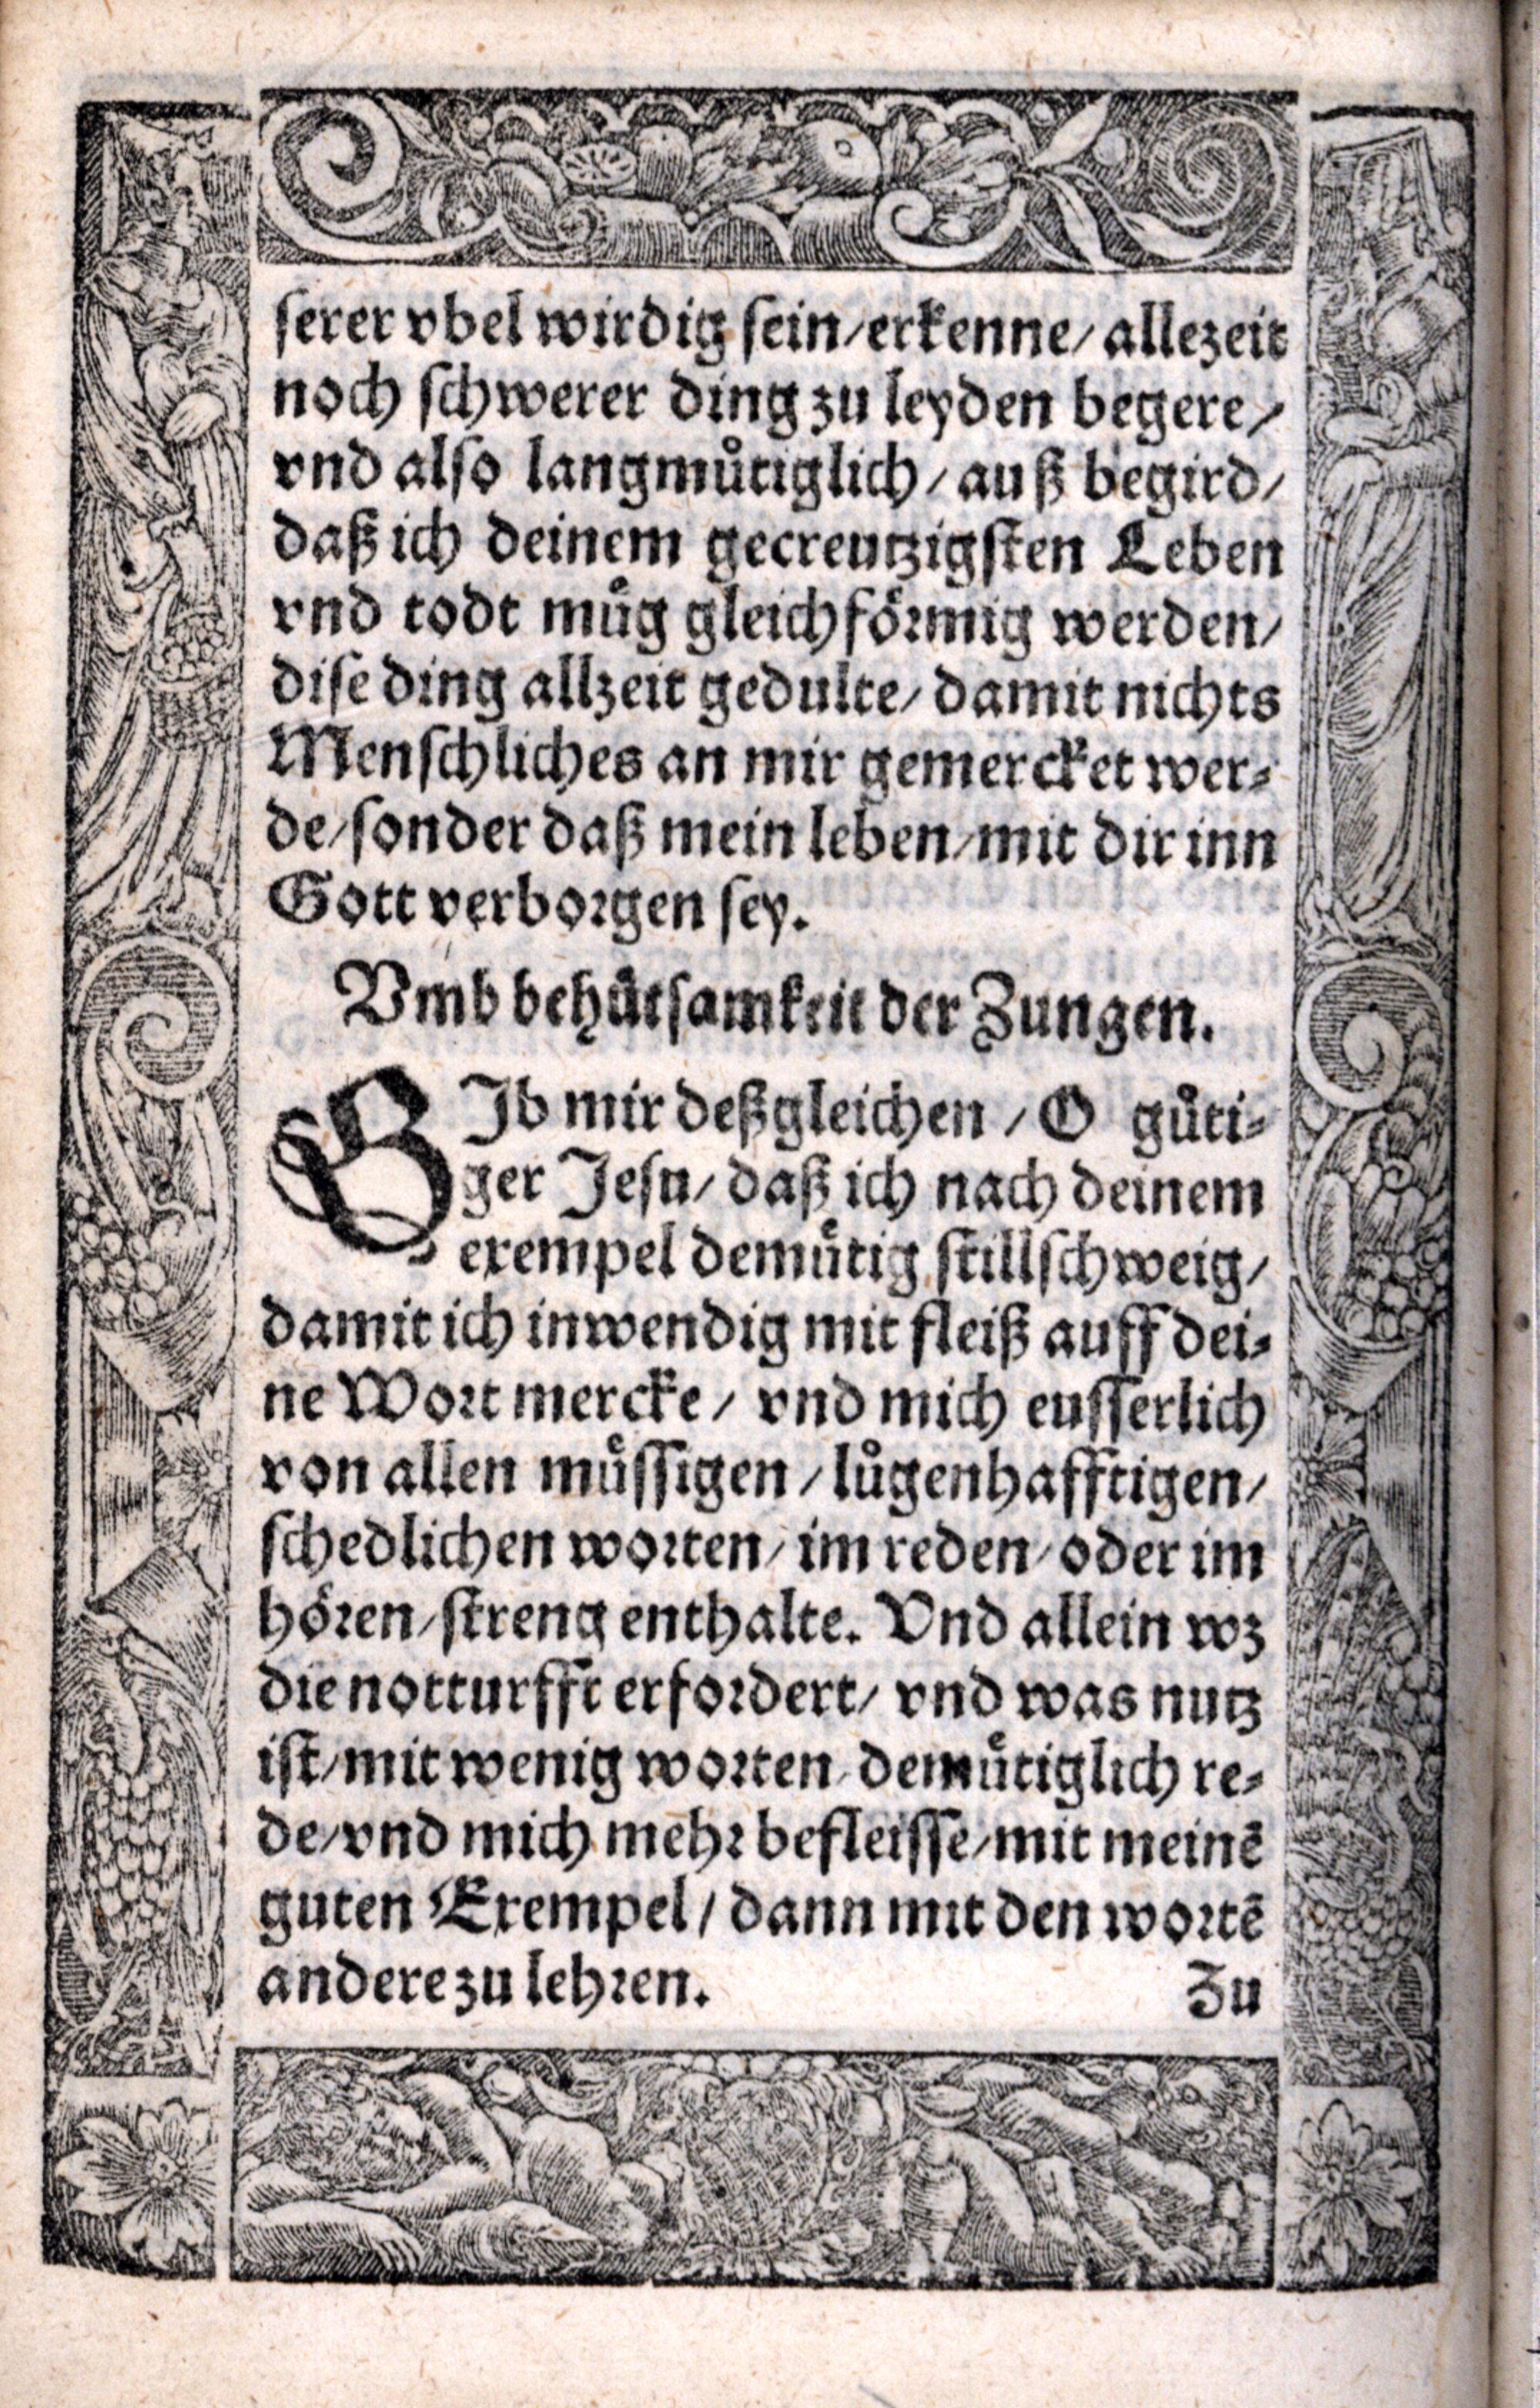 serer vbel wirdig sein/erkenne/ allezeit
noch schwerer ding zu leyden begere/
vnd also langmuͤtiglich/auß begird/
daß ich deinem gecreutzigsten Leben
vnd todt muͤg gleichfoͤrmig werden/
dise ding allzeit gedulte/ damit nichts
Menschliches an mir gemercket wer-
de/sonder daß mein leben/mit dir inn
Gott verborgen sey.
Vmb behuͤtsamkeit der Zungen.
GIb mir deßgleichen/O guͤti-
ger Jesu/ daß ich nach deinem
exempel demuͤtig stillschweig/
damit ich inwendig mit fleiß auff dei-
ne Wort mercke/ vnd mich eusserlich
von allen muͤssigen/luͤgenhafftigen/
schedlichen worten/im reden/oder im
hoͤren/streng enthalte. Vnd allein wz
die notturfft erfordert/ vnd was nutz
ist/mit wenig worten/demuͤtiglich re-
de/vnd mich mehr befleisse/mit meinē
guten Exempel/ dann mit den wortē
andere zu lehren. Zu